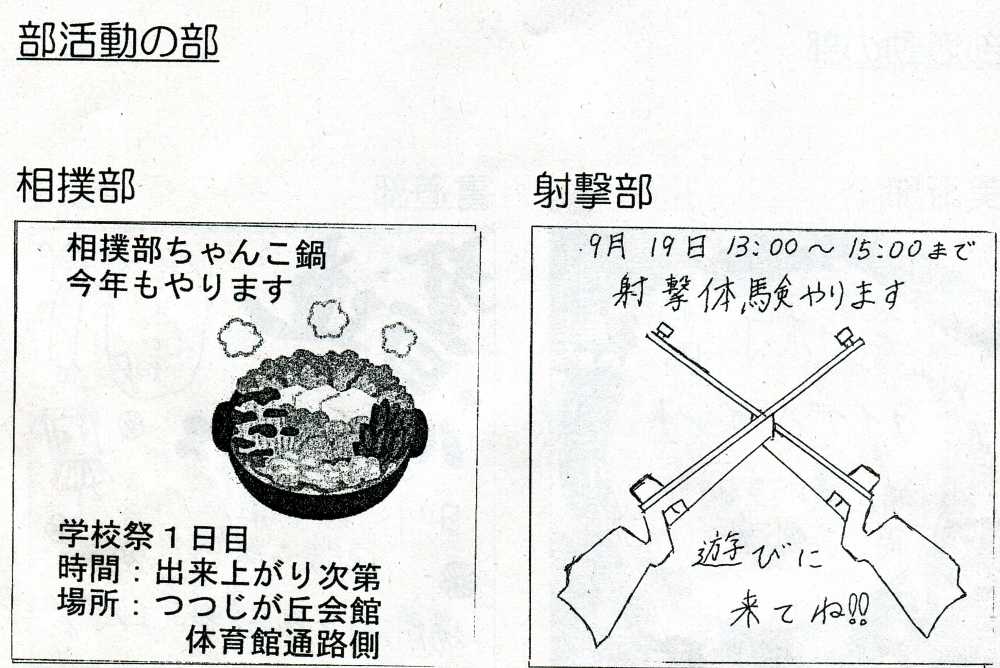 部活動の部
相撲部
相撲部ちゃんこ鍋
今年もやります
学校祭1日目
時間：出来上がり次第
場所：つつじが丘会館
体育館通路側
射撃部
9月19日 13:00～15:00まで
射撃体験やります
遊びに
来てね!!